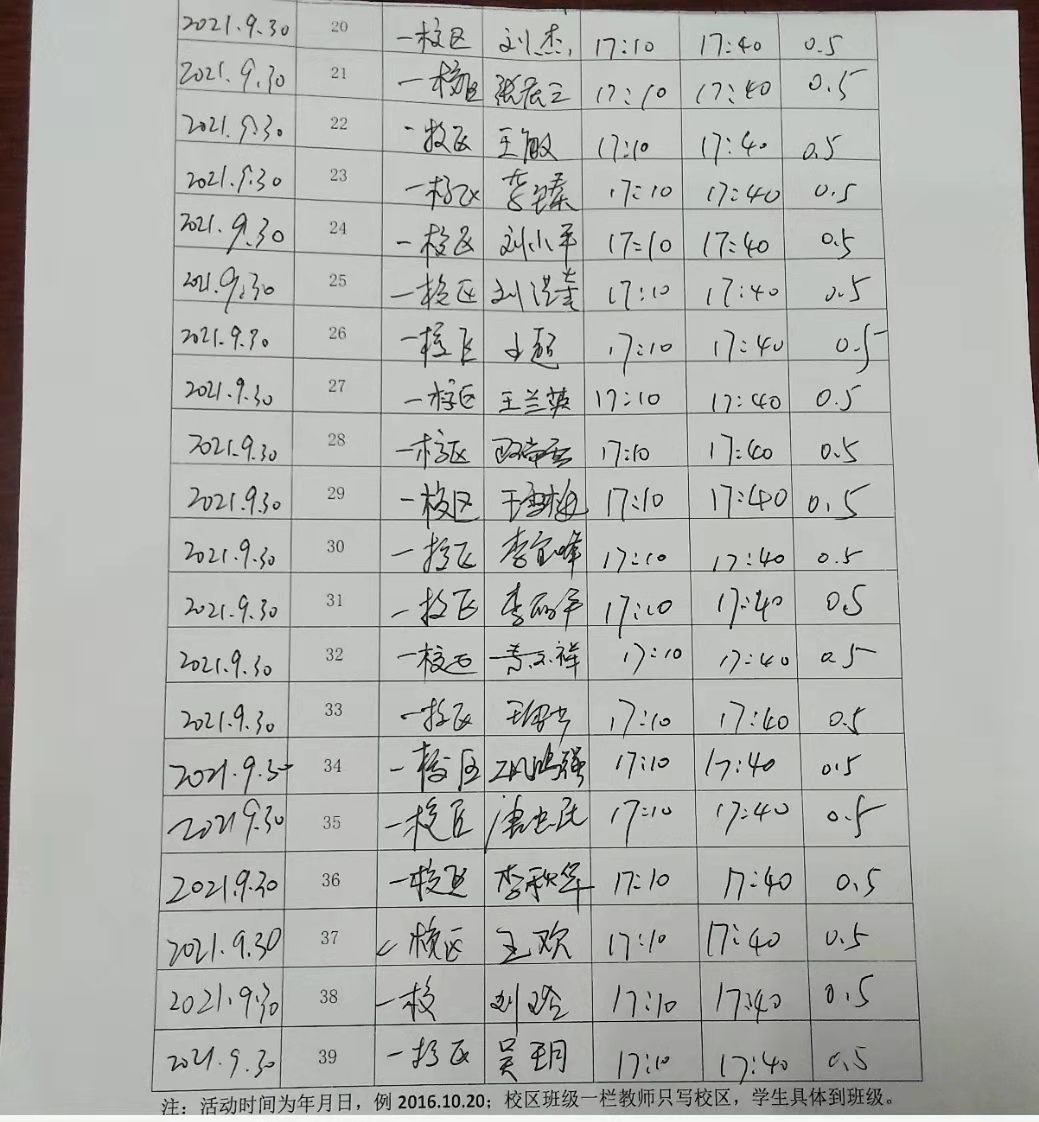 2021.9.30 20 一校区 刘杰 17:10 17:40 0.5
2021.9.30 21 一校区 17:10 17:40 0.5
2021.9.30 22 一校区 王敏 17:10 17:40 0.5
2021.9.30 23 一校区 17:10 17:40 0.5
2021.9.30 24 一校区 刘小平 17:10 17:40 0.5
2021.9.30 25 一校区 17:10 17:40 0.5
2021.9.30 26 一校区 17:10 17:40 0.5
2021.9.30 27 一校区 王兰英 17:10 17:40 0.5
2021.9.30 28 一校区 17:10 17:40 0.5
2021.9.30 29 一校区 王雪梅 17:10 17:40 0.5
2021.9.30 30 一校区 李宜峰 17:10 17:40 0.5
2021.9.30 31 一校区 17:10 17:40 0.5
2021.9.30 32 一校区 17:10 17:40 0.5
2021.9.30 33 一校区 17:10 17:40 0.5
2021.9.30 34 一校区 17:10 17:40 0.5
2021 9.30 35 一校区 唐忠民 17:10 17:40 0.5
2021.9.30 36 一校区 李秋华 17:10 17:40 0.5
2021.9.30 37 一校区 王欢 17:10 17:40 0.5
2021.9.30 38 一校 17:10 17:40 0.5
2021.9.30 39 一校区 吴玥 17:10 17:40 0.5
注：活动时间为年月日，例 2016.10.20；校区班级一栏教师只写校区，学生具体到班级。